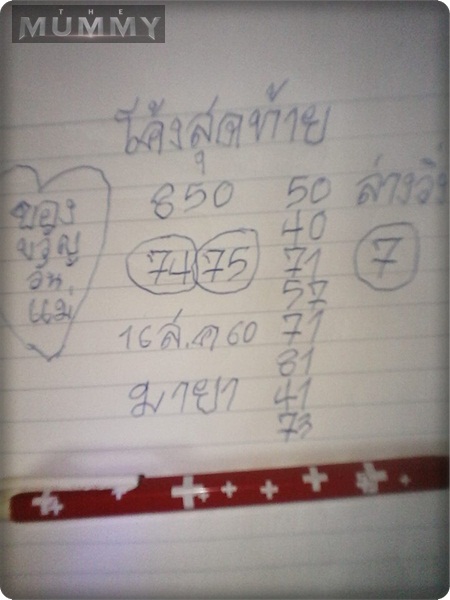 THE
MUMMY
โค้งสุดท้าย
ของ
ขวัญ
วัน
แม่
850
74 75
16 ส.ค 60
มายา
50
40
71
57
71
81
41
73
ล่างวิ่ง
7